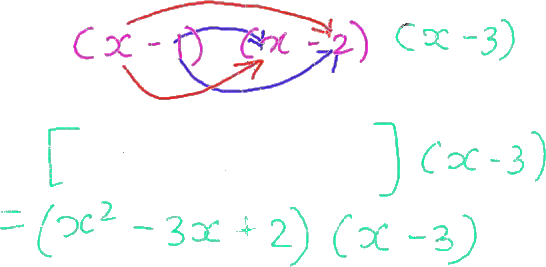 (x - 1) (x - 2) (x - 3)
[ ] (x - 3)
= (x² - 3x + 2) (x - 3)